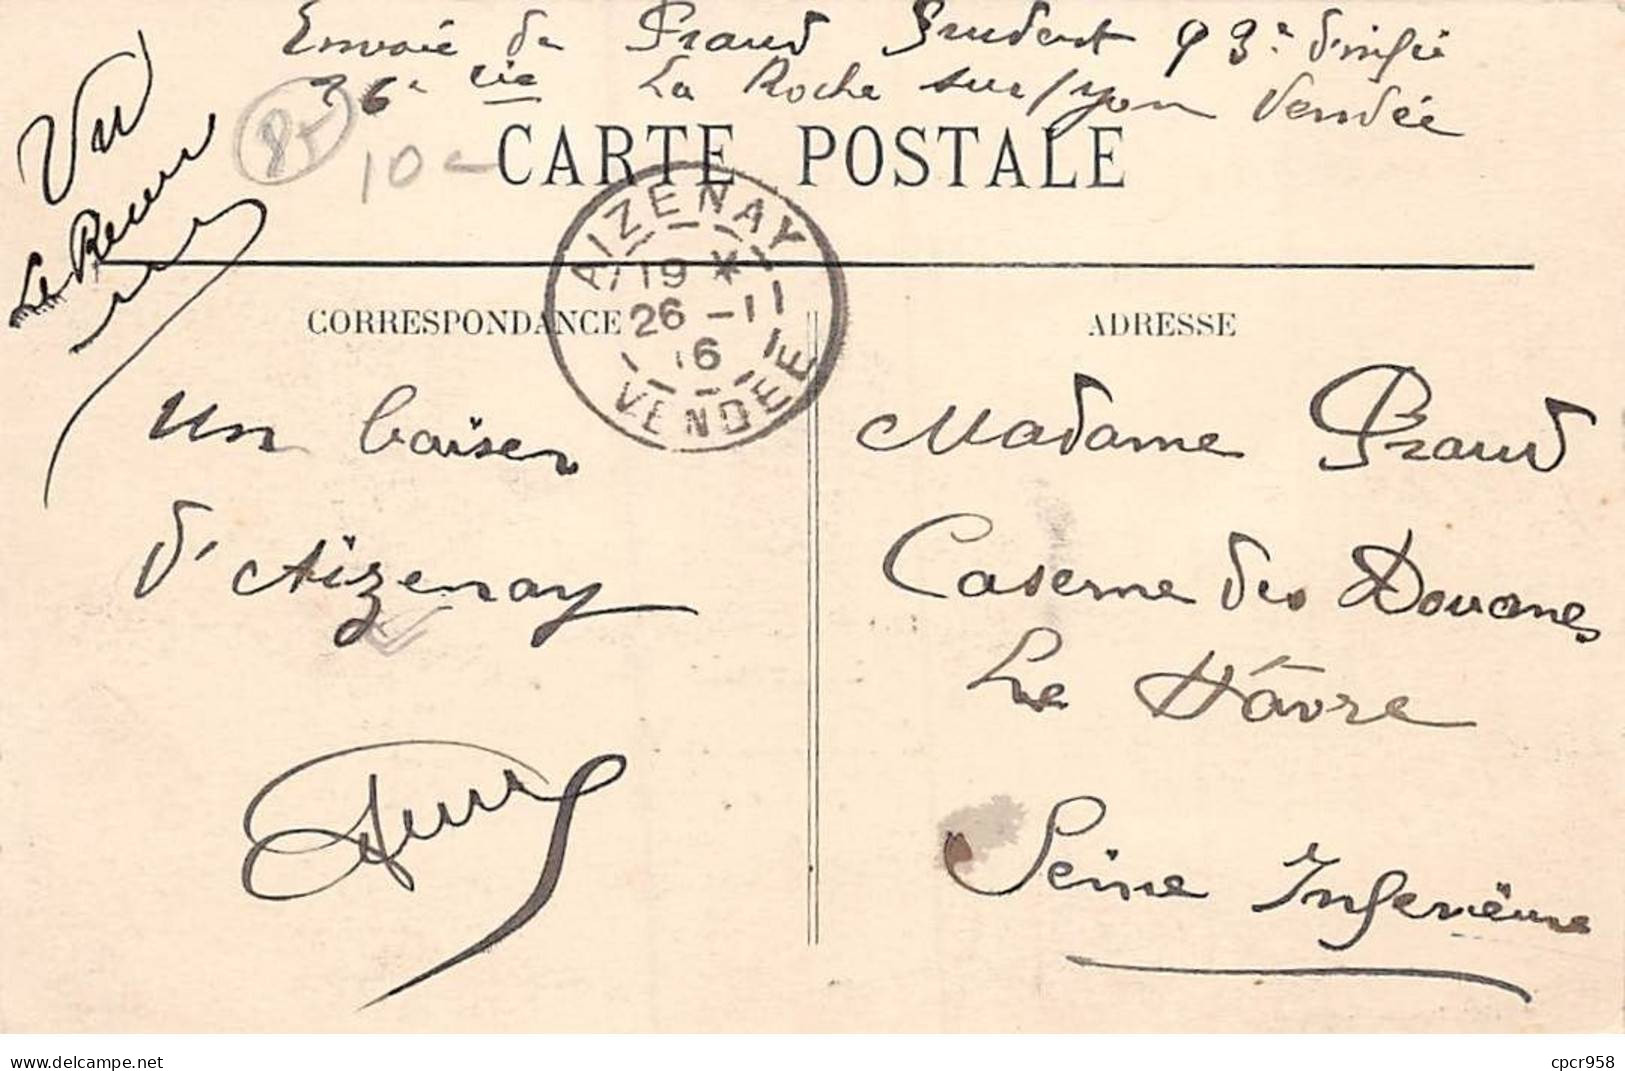 Envoie de Praud Prudent 93e d'infie
36e Cie La Roche sur/yon Vendée
Vu
Le Receveur
85
10
CARTE POSTALE
AIZENAY
19 *
26 - 11
16
VENDEE
CORRESPONDANCE
ADRESSE
Un baiser
d'Aizenay
Madame Praud
Caserne des Douanes
Le Hâvre
Seine Inferieure
cpcr958